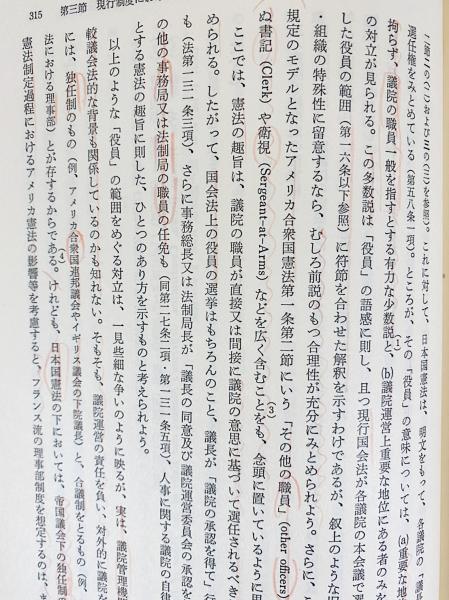 315　第三節　現行制度にお
二節二の(一)および三の(三)を参照)。これに対して、日本国憲法は、明文をもって、各議院の「議
選任権をみとめている(第五八条一項)。ところが、その「役員」の意味については、(a)重要な地
拘らず、議院の職員一般を指すとする有力な少数説と、(b)議院運営上重要な地位にある者のみを
の対立が見られる。この多数説は「役員」の語感に則し、且つ現行国会法が各議院の本会議で選
した役員の範囲(第一六条以下参照)に符節を合わせた解釈を示すわけであるが、叙上のような
・組織の特殊性に留意するなら、むしろ前説のもつ合理性が充分にみとめられよう。さらに、こ
規定のモデルとなったアメリカ合衆国憲法第一条第二節にいう「その他の職員」(other officers)
ぬ書記(Clerk)や衛視(Sergeant-at-Arms)などを広く含むことをも、念頭に置いているように思
ここでは、憲法の趣旨は、議院の職員が直接又は間接に議院の意思に基づいて選任されるべき
められる。したがって、国会法上の役員の選挙はもちろんのこと、議長が「議院の承認を得て」行
も(法第一三一条三項)、さらに事務総長又は法制局長が「議長の同意及び議院運営委員会の承
の他の事務局又は法制局の職員の任免も(同第二七条二項・第一三一条五項)、人事に関する議院の自律
とする憲法の趣旨に則した、ひとつのあり方を示すものと考えられよう。
以上のような「役員」の範囲をめぐる対立は、一見些細な争いのように映るが、実は、議院管理機
較議会法的な背景も関係しているのかも知れない。そもそも、議院運営の責任を負い、対外的に議院を
には、独任制のもの(例、アメリカ合衆国連邦議会やイギリス議会の下院議長)と、合議制をとるもの(例、
法における理事部)とが存するからである。(4)けれども、日本国憲法の下においては、帝国議会下の独任制の
憲法制定過程におけるアメリカ憲法の影響等を考慮すると、フランス流の理事部制度を想定するのは、ま